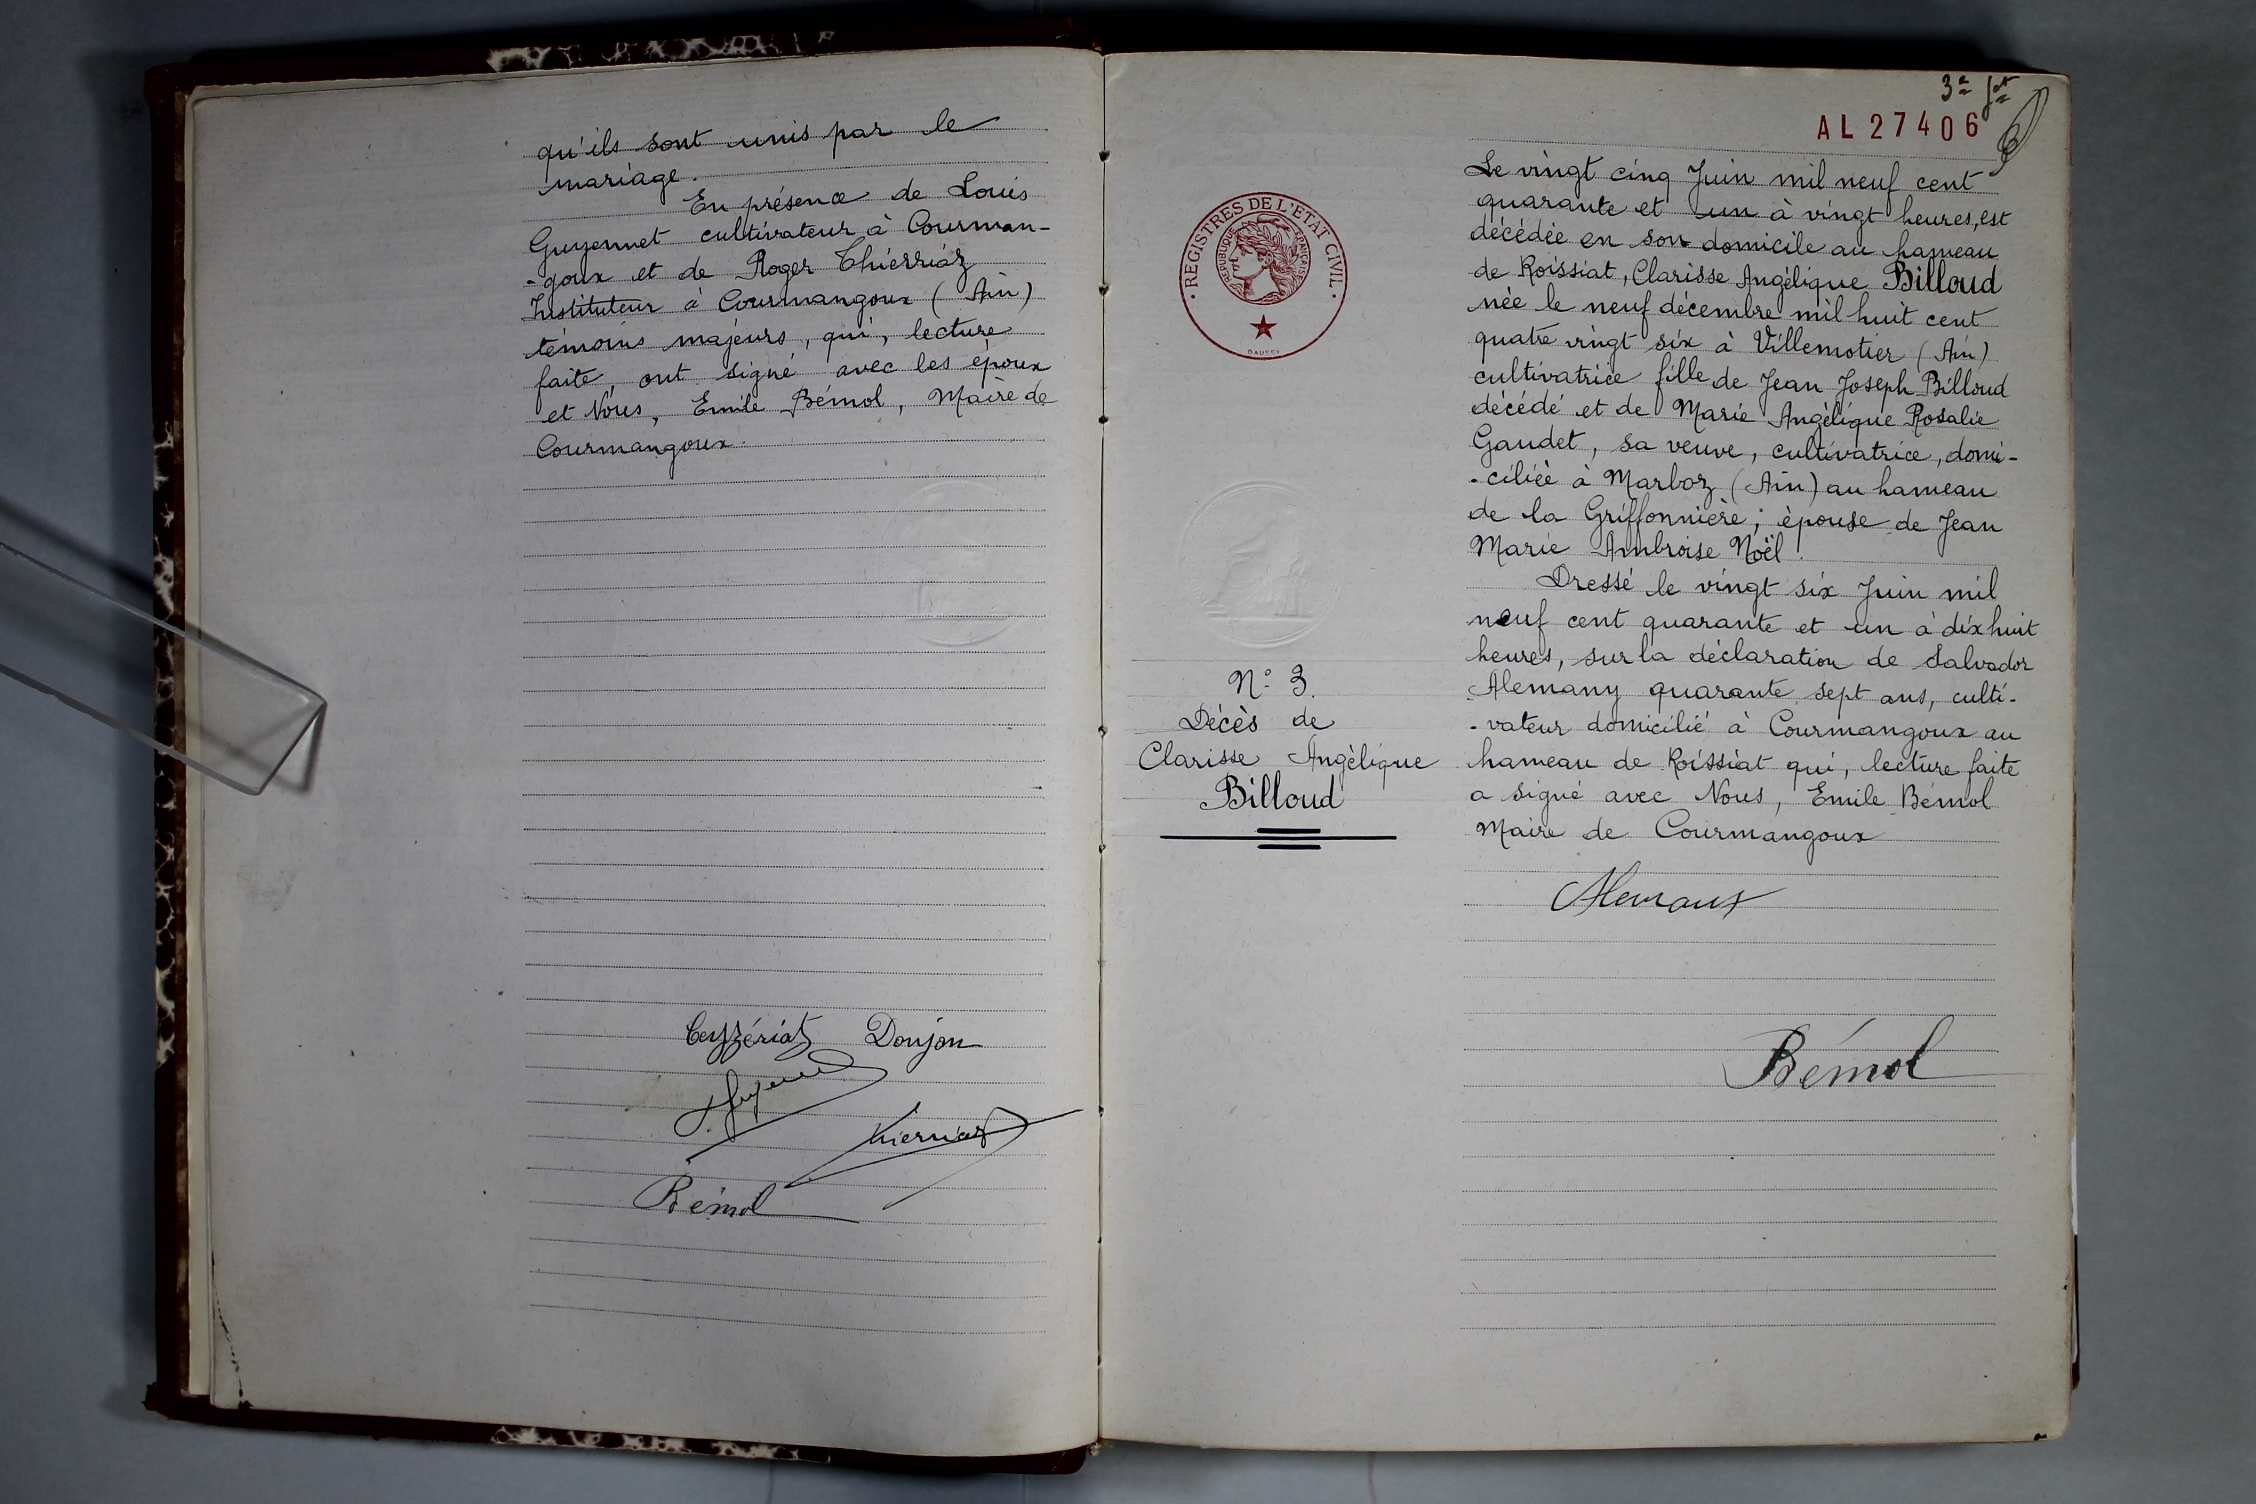 qu'ils sont unis par le
mariage.
En présence de Louis
Guyennet cultivateur à Courman-
-goux et de Roger Thierriaz
Instituteur à Courmangoux (Ain)
témoins majeurs, qui, lecture
faite, ont signé avec les époux
et Nous, Emile Bémol, Maire de
Courmangoux.
Ceyzériat Donjon
Thierriaz
Bémol
3e
AL27406
REGISTRES DE L'ETAT CIVIL
REPUBLIQUE FRANÇAISE
N° 3.
Décès de
Clarisse Angélique
Billoud
Le vingt cinq Juin mil neuf cent
quarante et un à vingt heures, est
décédée en son domicile au hameau
de Roissiat, Clarisse Angélique Billoud
née le neuf décembre mil huit cent
quatre vingt six à Villemotier (Ain)
cultivatrice fille de Jean Joseph Billoud
décédé et de Marie Angélique Rosalie
Gaudet, sa veuve, cultivatrice, domi-
-ciliée à Marboz (Ain) au hameau
de la Griffonnière; épouse de Jean
Marie Ambroise Noël.
Dressé le vingt six Juin mil
neuf cent quarante et un à dix huit
heures, sur la déclaration de Salvador
Alemany quarante sept ans, culti-
-vateur domicilié à Courmangoux au
hameau de Roissiat qui, lecture faite
a signé avec Nous, Emile Bémol
Maire de Courmangoux
Alemany
Bémol